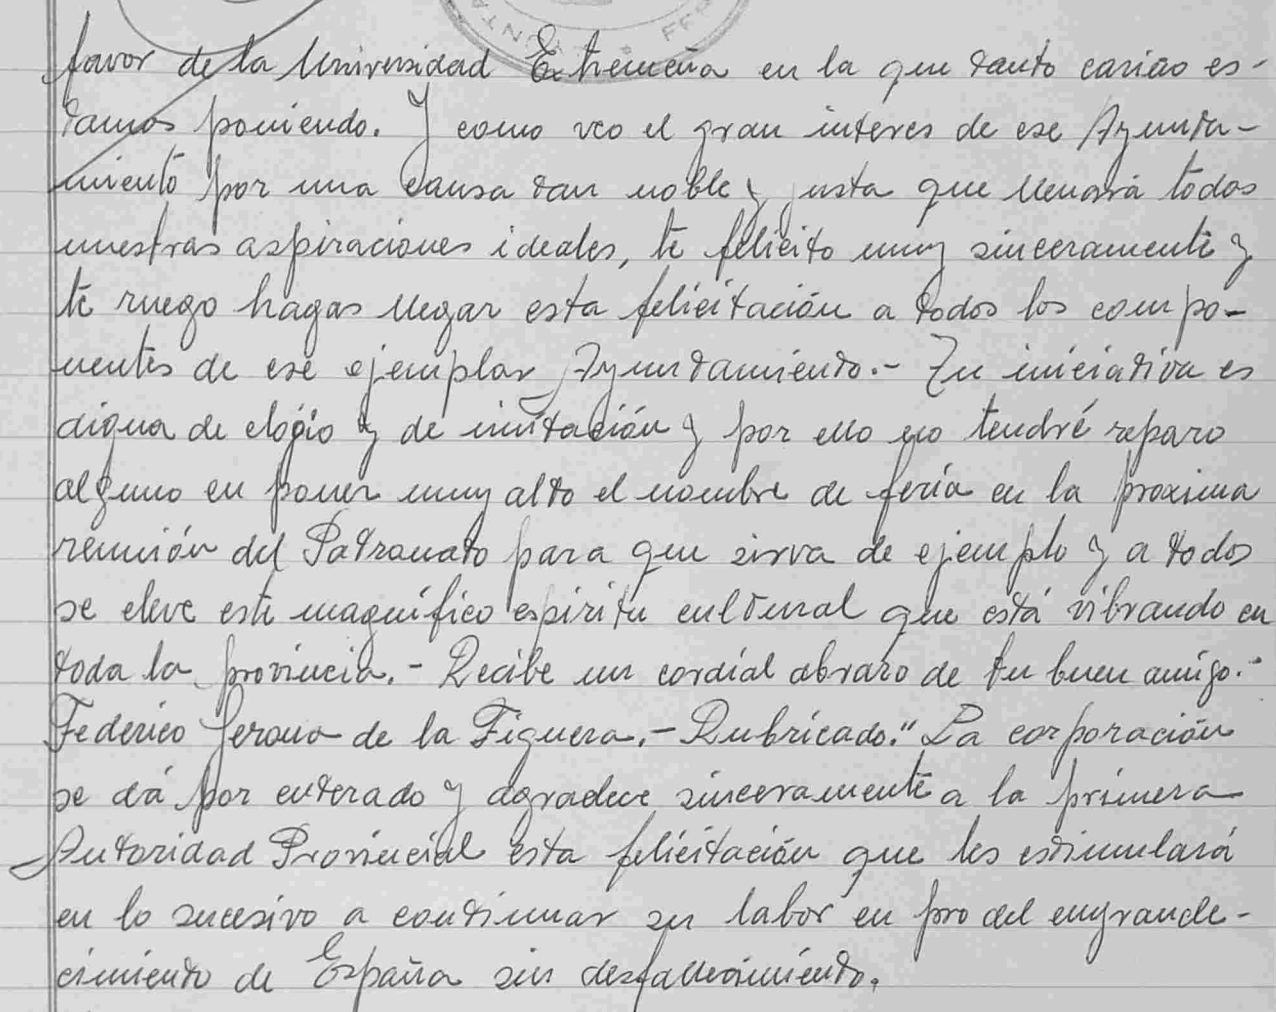 favor de la Universidad Extremeña en la que tanto cariño es-
tamos poniendo. Y como veo el gran interes de ese Ayunta-
miento por una causa tan noble y justa que llenará todas
nuestras aspiraciones ideales, te felicito muy sinceramente y
te ruego hagas llegar esta felicitación a todos los compo-
nentes de ese ejemplar Ayuntamiento.- Tu iniciativa es
digna de elógio y de imitación y por ello no tendré reparo
alguno en poner muy alto el nombre de feria en la proxima
reunión del Patronato para que sirva de ejemplo y a todos
se eleve este magnífico espiritu cultural que está vibrando en
toda la provincia.- Recibe un cordial abrazo de tu buen amigo.-
Federico Gerona de la Figuera.- Rubricado." La corporación
se dá por enterado y agradece sinceramente a la primera
Autoridad Provincial esta felicitación que les estimulará
en lo sucesivo a continuar su labor en pro del engrande-
cimiento de España sin desfallecimiento.